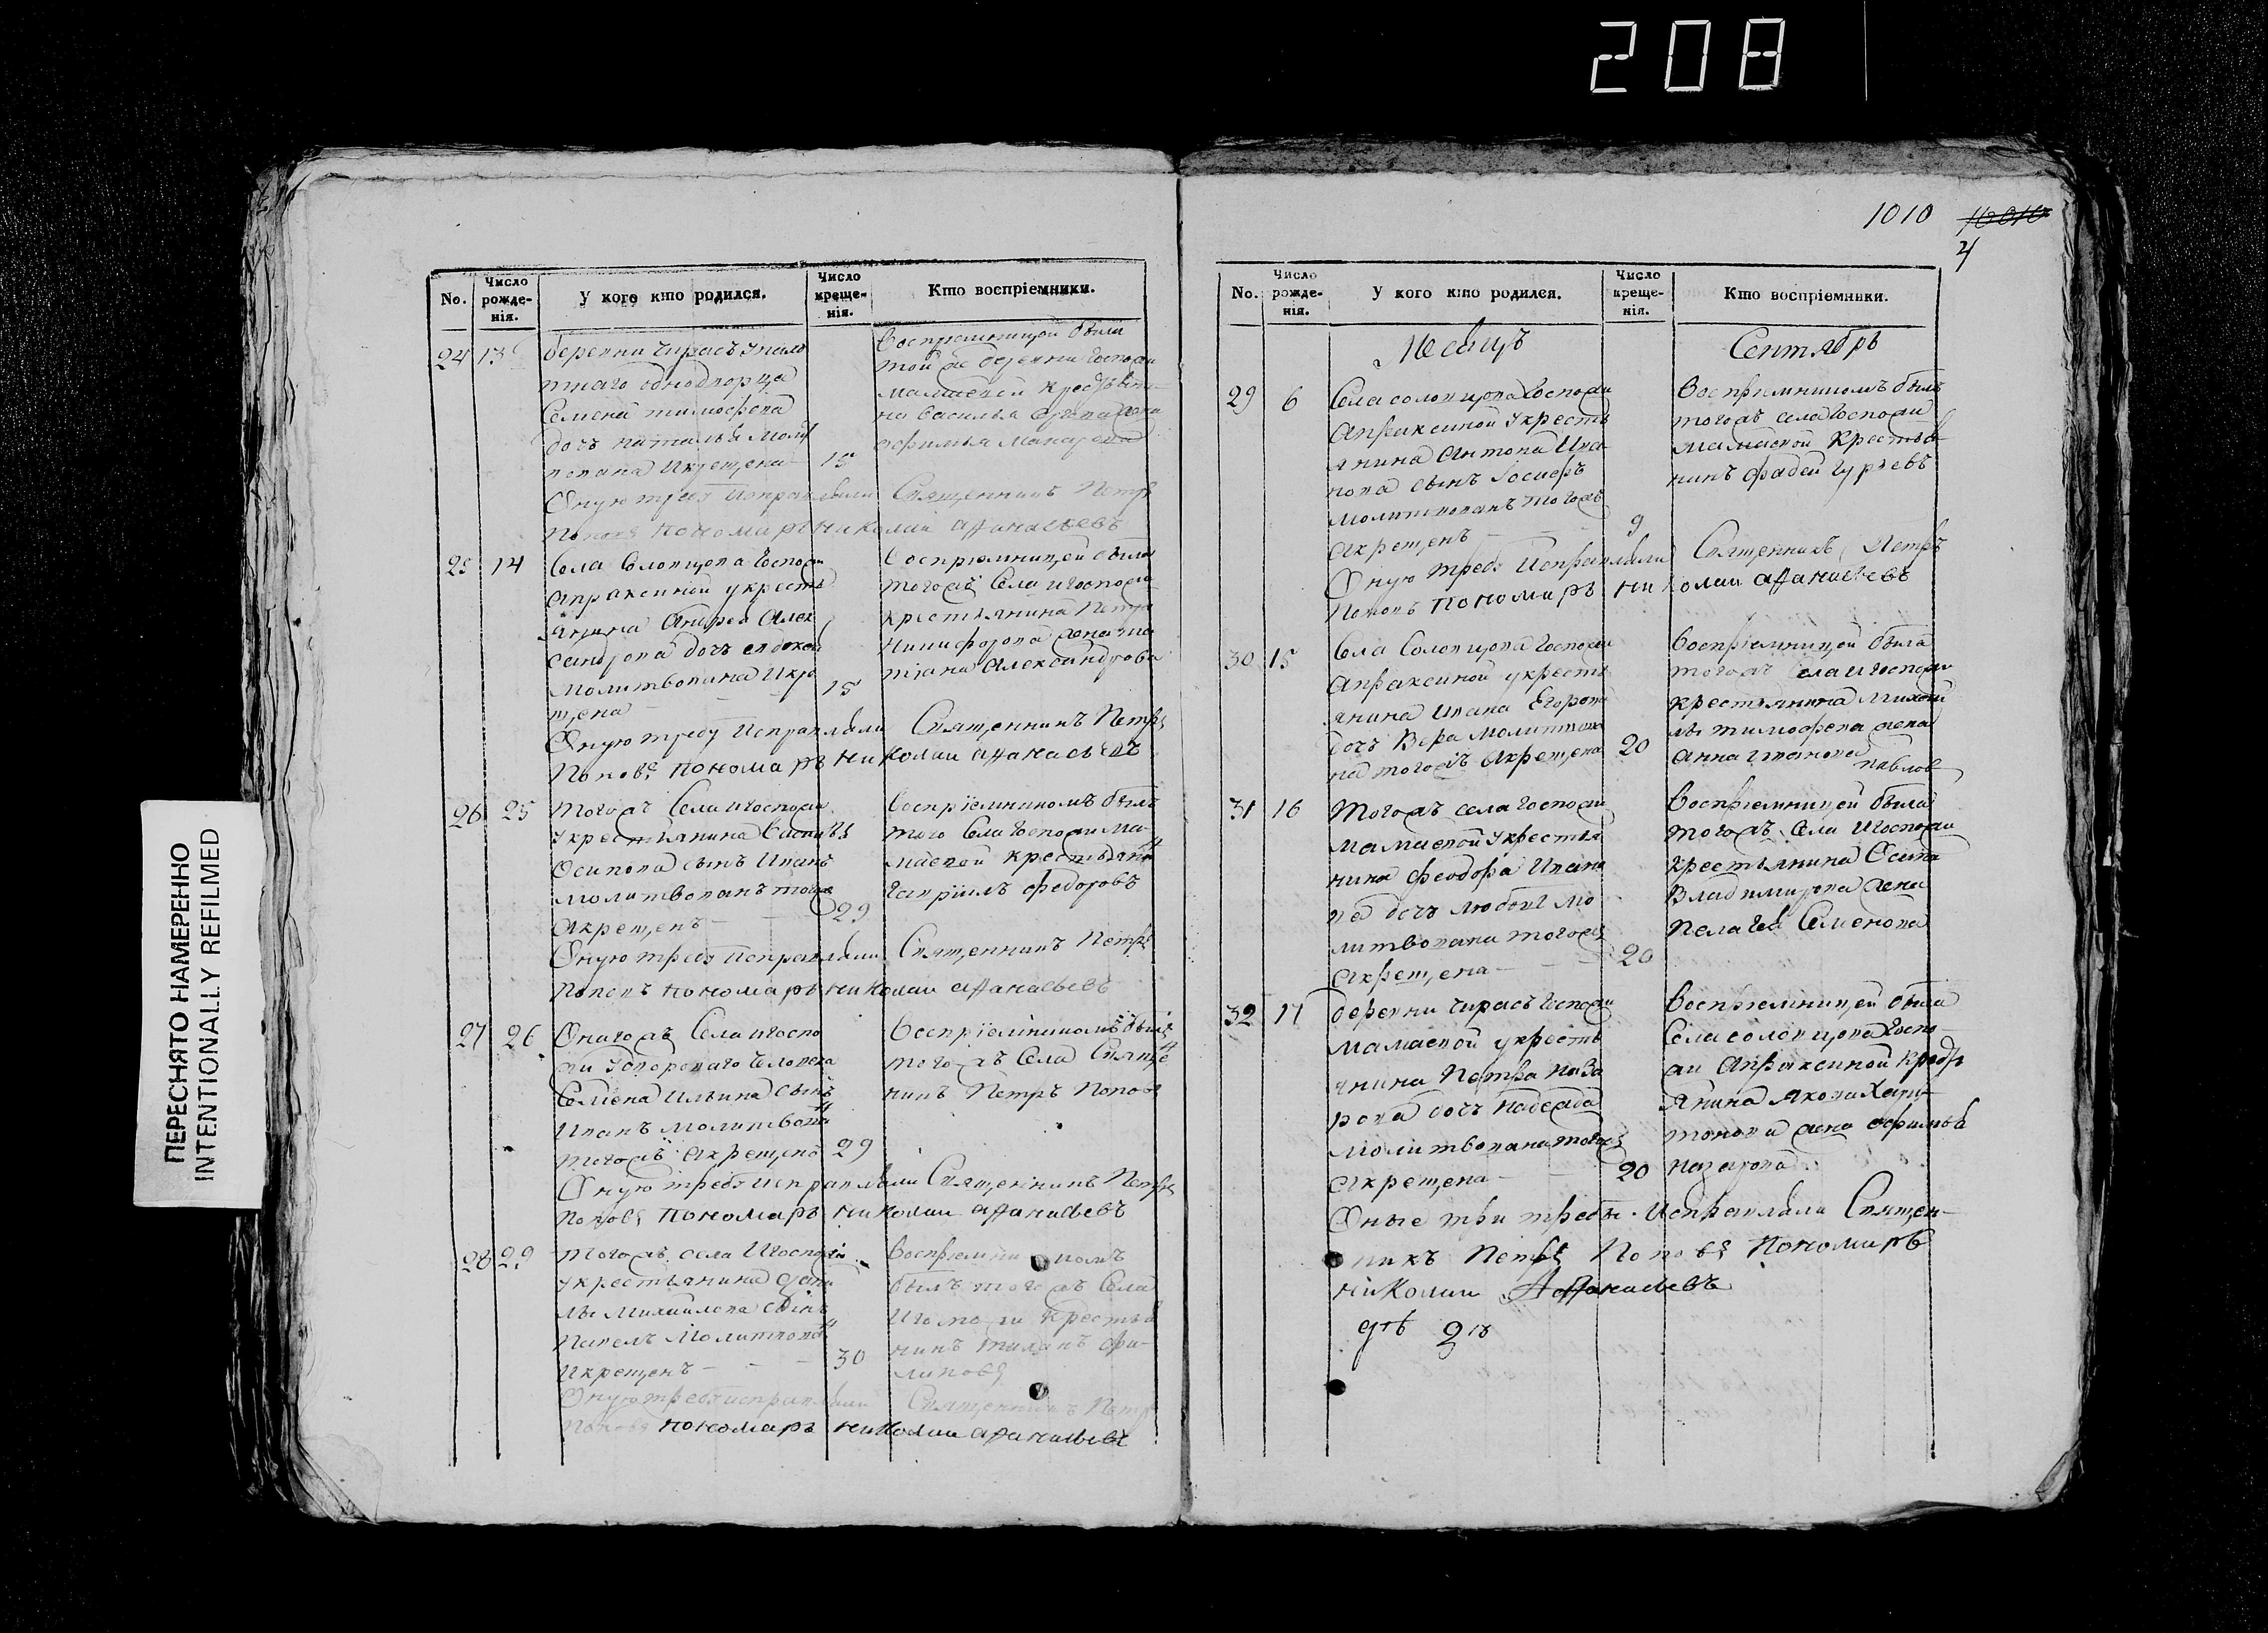 208
1010
4
ПЕРЕСНЯТО НАМЕРЕННО
INTENTIONALLY REFILMED
No.
Число рожде-нія.
У кого кто родился.
Число креще-нія.
Кто воспріемники.
24 13
деревни
однодворца
Семена тимофеева
дочь наталья
15
Священникъ Петръ
Поповъ пономарь николай афанасьевъ
25 14
Села Солопцова Госпожи
апраксиной у кресть
янина Андрея Алек
сандрова дочь евдокея
молитвована и кре
щена 15
воспріемницей была
тогожъ Села и госпожи
крестьянина Петра
Никифорова жена
Александрова
Оную требу Исправляли Священникъ Петръ
Поповъ пономарь николай афанасьевъ
26 25
тогожъ Села и госпожи
у крестьянина
Осипова сынъ Иванъ
молитвованъ тогожъ
и крещенъ 29
воспріемникомъ былъ
того Села Госпожи Ма
маевой крестьянинъ
гавріилъ федоровъ
Оную требу Исправляли Священникъ Петръ
Поповъ пономарь николай афанасьевъ
27 26
Онагожъ Села и госпо
жи у дворового человека
Семена Ильина Сынъ
Иванъ молитвованъ
тогожъ и крещенъ 29
воспріемникомъ былъ
тогожъ Села Священ
никъ Петръ Поповъ
Оную требу исправляли Священникъ Петръ
Поповъ пономарь николай афанасьевъ
28 29
тогожъ села и госпожи
у крестьянина
Михайлова сынъ
Павелъ молитвованъ
и крещенъ 30
воспріемникомъ
былъ тогожъ Села
и госпожи крестья
нинъ фи
липовъ
Оную требу исправляли Священникъ Петръ
Поповъ пономарь николай афанасьевъ
No.
Число рожде-нія.
У кого кто родился.
Число креще-нія.
Кто воспріемники.
Месяцъ Сентябрь
29 6
Села солопцова Госпожи
Апраксиной у кресть
янина Антона Ива
нова сынъ Іосифъ
молитвованъ тогожъ
и крещенъ 9
воспріемникомъ былъ
тогожъ села Госпожи
мамаевой крестья
нинъ фадей гурьевъ
Оную требу Исправляли Священникъ Петръ
Поповъ пономарь николай афанасьевъ
30 15
Села Солопцова Госпожи
Апраксиной у кресть
янина Ивана Егорова
дочь Вера молитвова
на тогожъ и крещена 20
воспріемницей была
тогожъ Села и госпожи
крестьянина Михай
лы тимофеева жена
Анна Иванова
павлов
31 16
Тогожъ села госпожи
мамаевой у крестья
нина феодора Ивано
ва дочь любовь мо
литвована тогожъ
и крещена 20
воспріемницей была
тогожъ Села и госпожи
крестьянина Осипа
Владимирова жена
пелагея Семенова
32 17
деревни Госпожи
мамаевой у кресть
янина Петра Наза
рова дочь надежда
молитвована тогожъ
и крещена 20
воспріемницей была
Села солопцова Госпо
жи Апраксиной кресть
янина якова Хари
тонова жена
назарова
Оные три требы Исправляли Священ
никъ Петръ Поповъ пономарь
николай Афанасьевъ